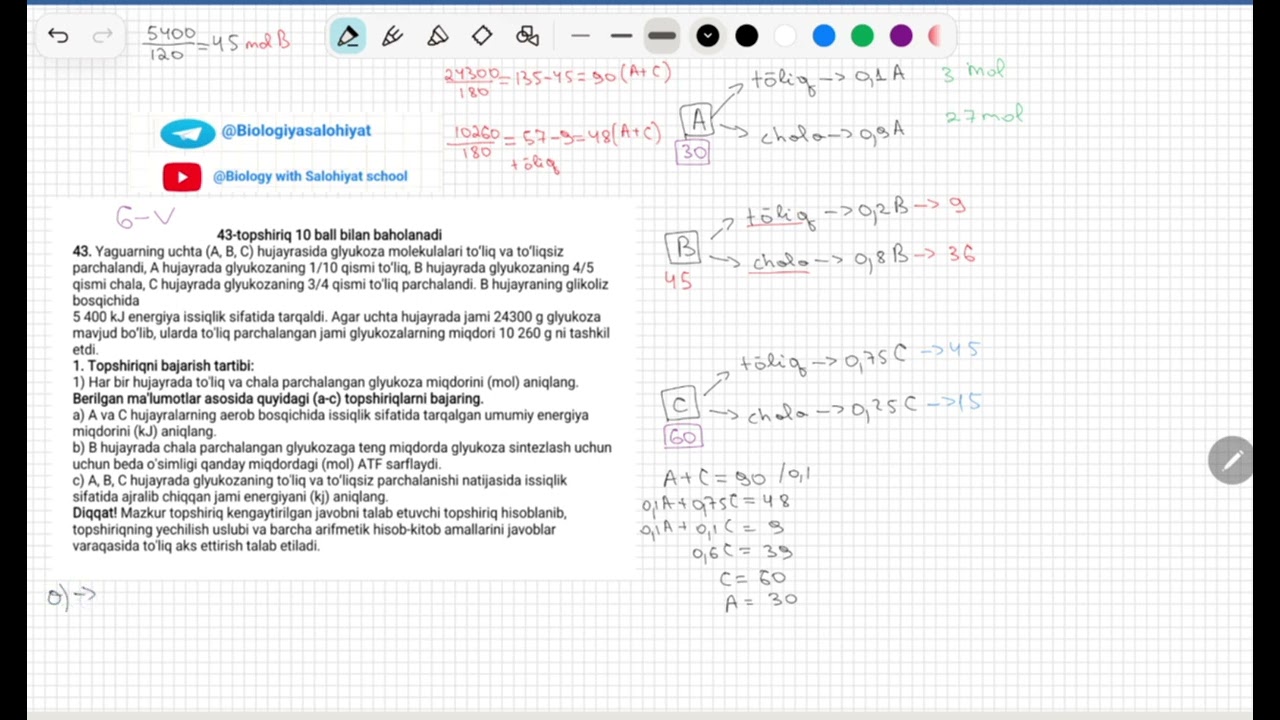 5400/120 = 45 mol B
@Biologiyasalohiyat
@Biology with Salohiyat school
24300/180 = 135-45 = 90 (A+C)
10260/180 = 57-9 = 48 (A+C)
tōliq
A
30
tōliq → 0,1 A 3 mol
chola → 0,9A 27 mol
B
45
tōliq → 0,2B → 9
chola → 0,8B → 36
6-V
43-topshiriq 10 ball bilan baholanadi
43. Yaguarning uchta (A, B, C) hujayrasida glyukoza molekulalari to'liq va to'liqsiz
parchalandi, A hujayrada glyukozaning 1/10 qismi to'liq, B hujayrada glyukozaning 4/5
qismi chala, C hujayrada glyukozaning 3/4 qismi to'liq parchalandi. B hujayraning glikoliz
bosqichida
5 400 kJ energiya issiqlik sifatida tarqaldi. Agar uchta hujayrada jami 24300 g glyukoza
mavjud bo'lib, ularda to'liq parchalangan jami glyukozalarning miqdori 10 260 g ni tashkil
etdi.
1. Topshiriqni bajarish tartibi:
1) Har bir hujayrada to'liq va chala parchalangan glyukoza miqdorini (mol) aniqlang.
Berilgan ma'lumotlar asosida quyidagi (a-c) topshiriqlarni bajaring.
a) A va C hujayralarning aerob bosqichida issiqlik sifatida tarqalgan umumiy energiya
miqdorini (kJ) aniqlang.
b) B hujayrada chala parchalangan glyukozaga teng miqdorda glyukoza sintezlash uchun
uchun beda o'simligi qanday miqdordagi (mol) ATF sarflaydi.
c) A, B, C hujayrada glyukozaning to'liq va to'liqsiz parchalanishi natijasida issiqlik
sifatida ajralib chiqqan jami energiyani (kj) aniqlang.
Diqqat! Mazkur topshiriq kengaytirilgan javobni talab etuvchi topshiriq hisoblanib,
topshiriqning yechilish uslubi va barcha arifmetik hisob-kitob amallarini javoblar
varaqasida to'liq aks ettirish talab etiladi.
C
60
tōliq → 0,75C → 45
chola → 0,25C → 15
A+C = 90 /0,1
0,1A+0,75C = 48
0,1A+0,1C = 9
0,6C = 39
C = 60
A = 30